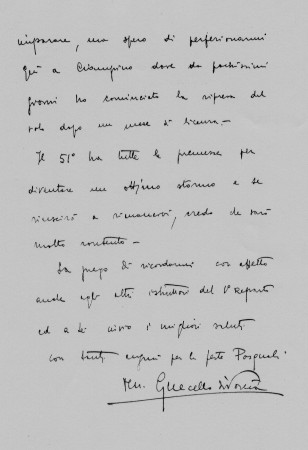 imparare, ma spero di perfezionarmi
qui a Ciampino dove da pochissimi
giorni ho cominciato la ripresa del
volo dopo un mese di licenza –
Il 51° ha tutte le premesse per
diventare un ottimo stormo e se
riuscirò a rimanervi, credo che sarò
molto contento –
La prego di ricordarmi con affetto
anche agli altri istruttori del 1° Reparto
ed a Lei invio i migliori saluti
con tanti auguri per le feste Pasquali
Ten.